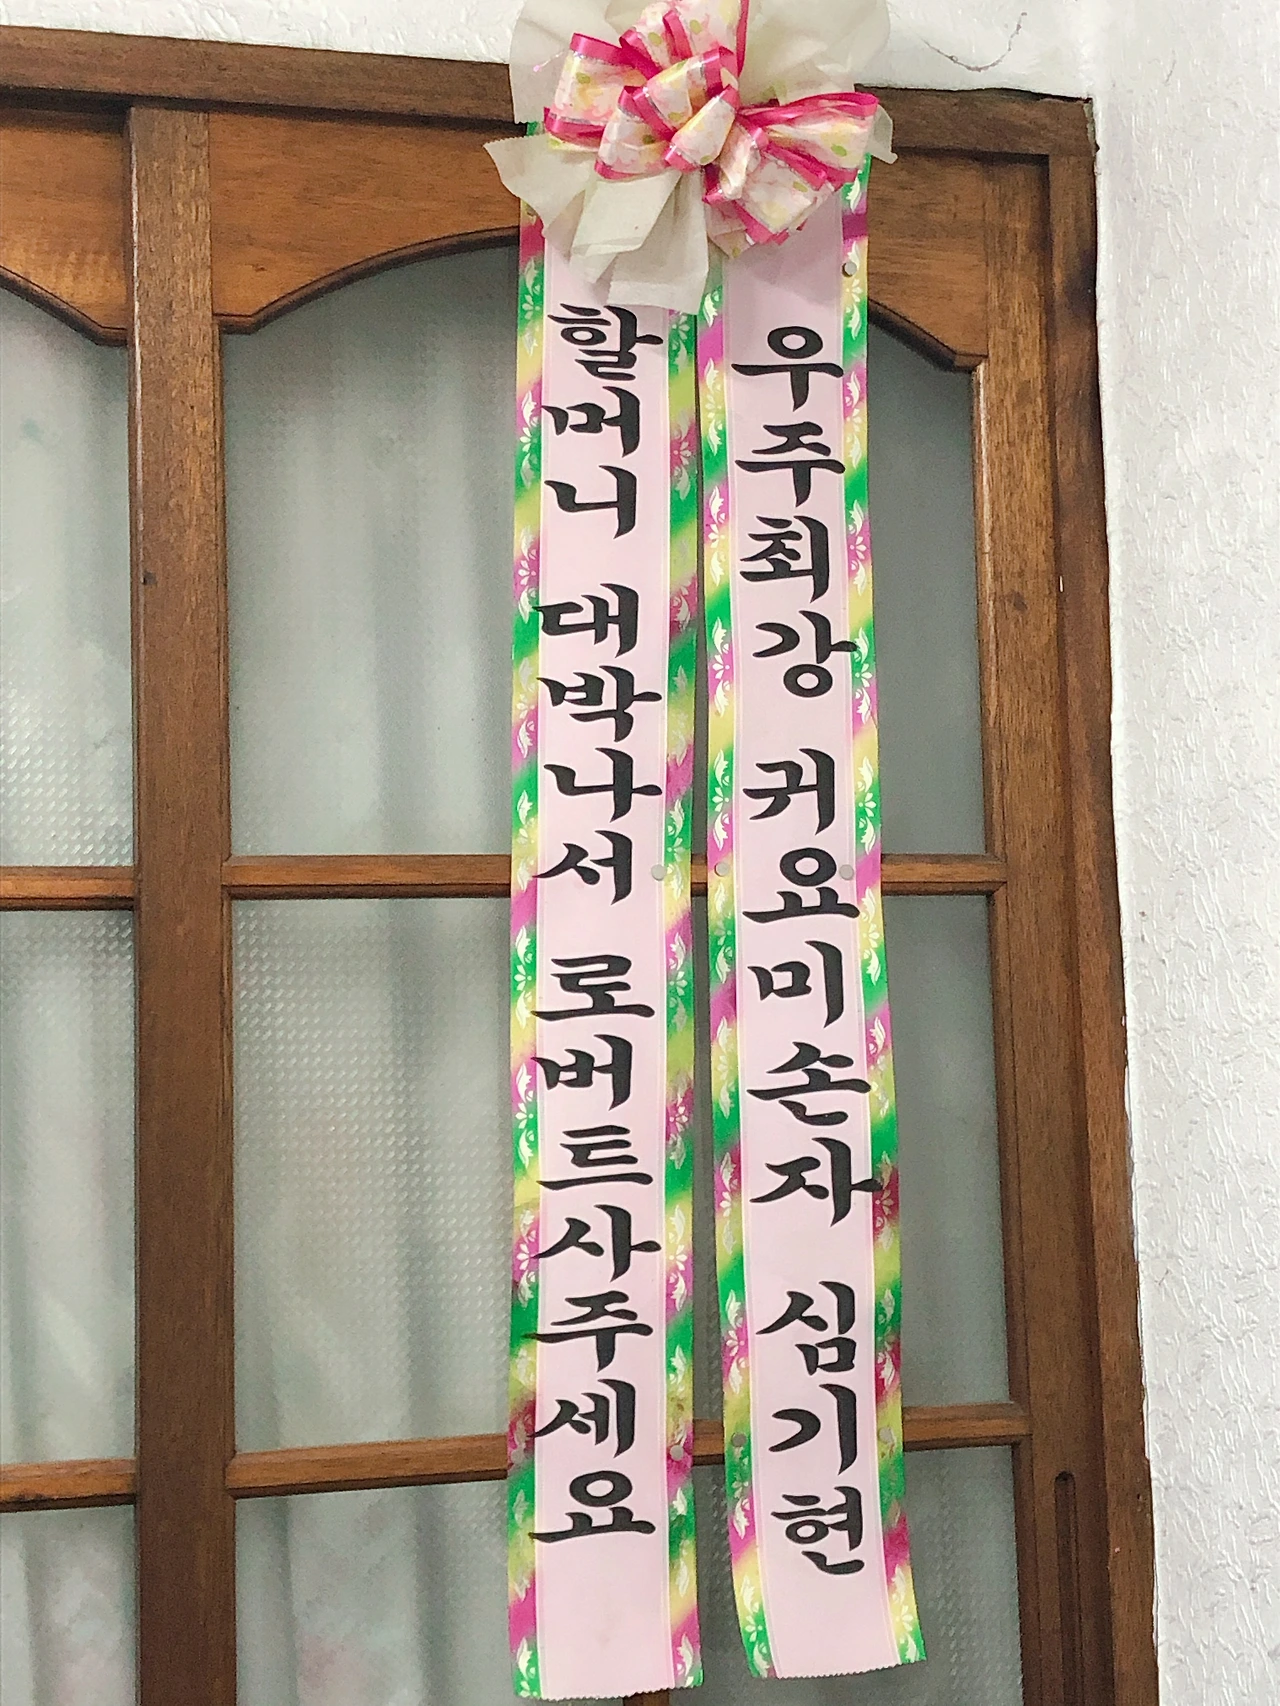 할머니 대박나서 로버트사주세요
우주최강 귀요미손자 심기현